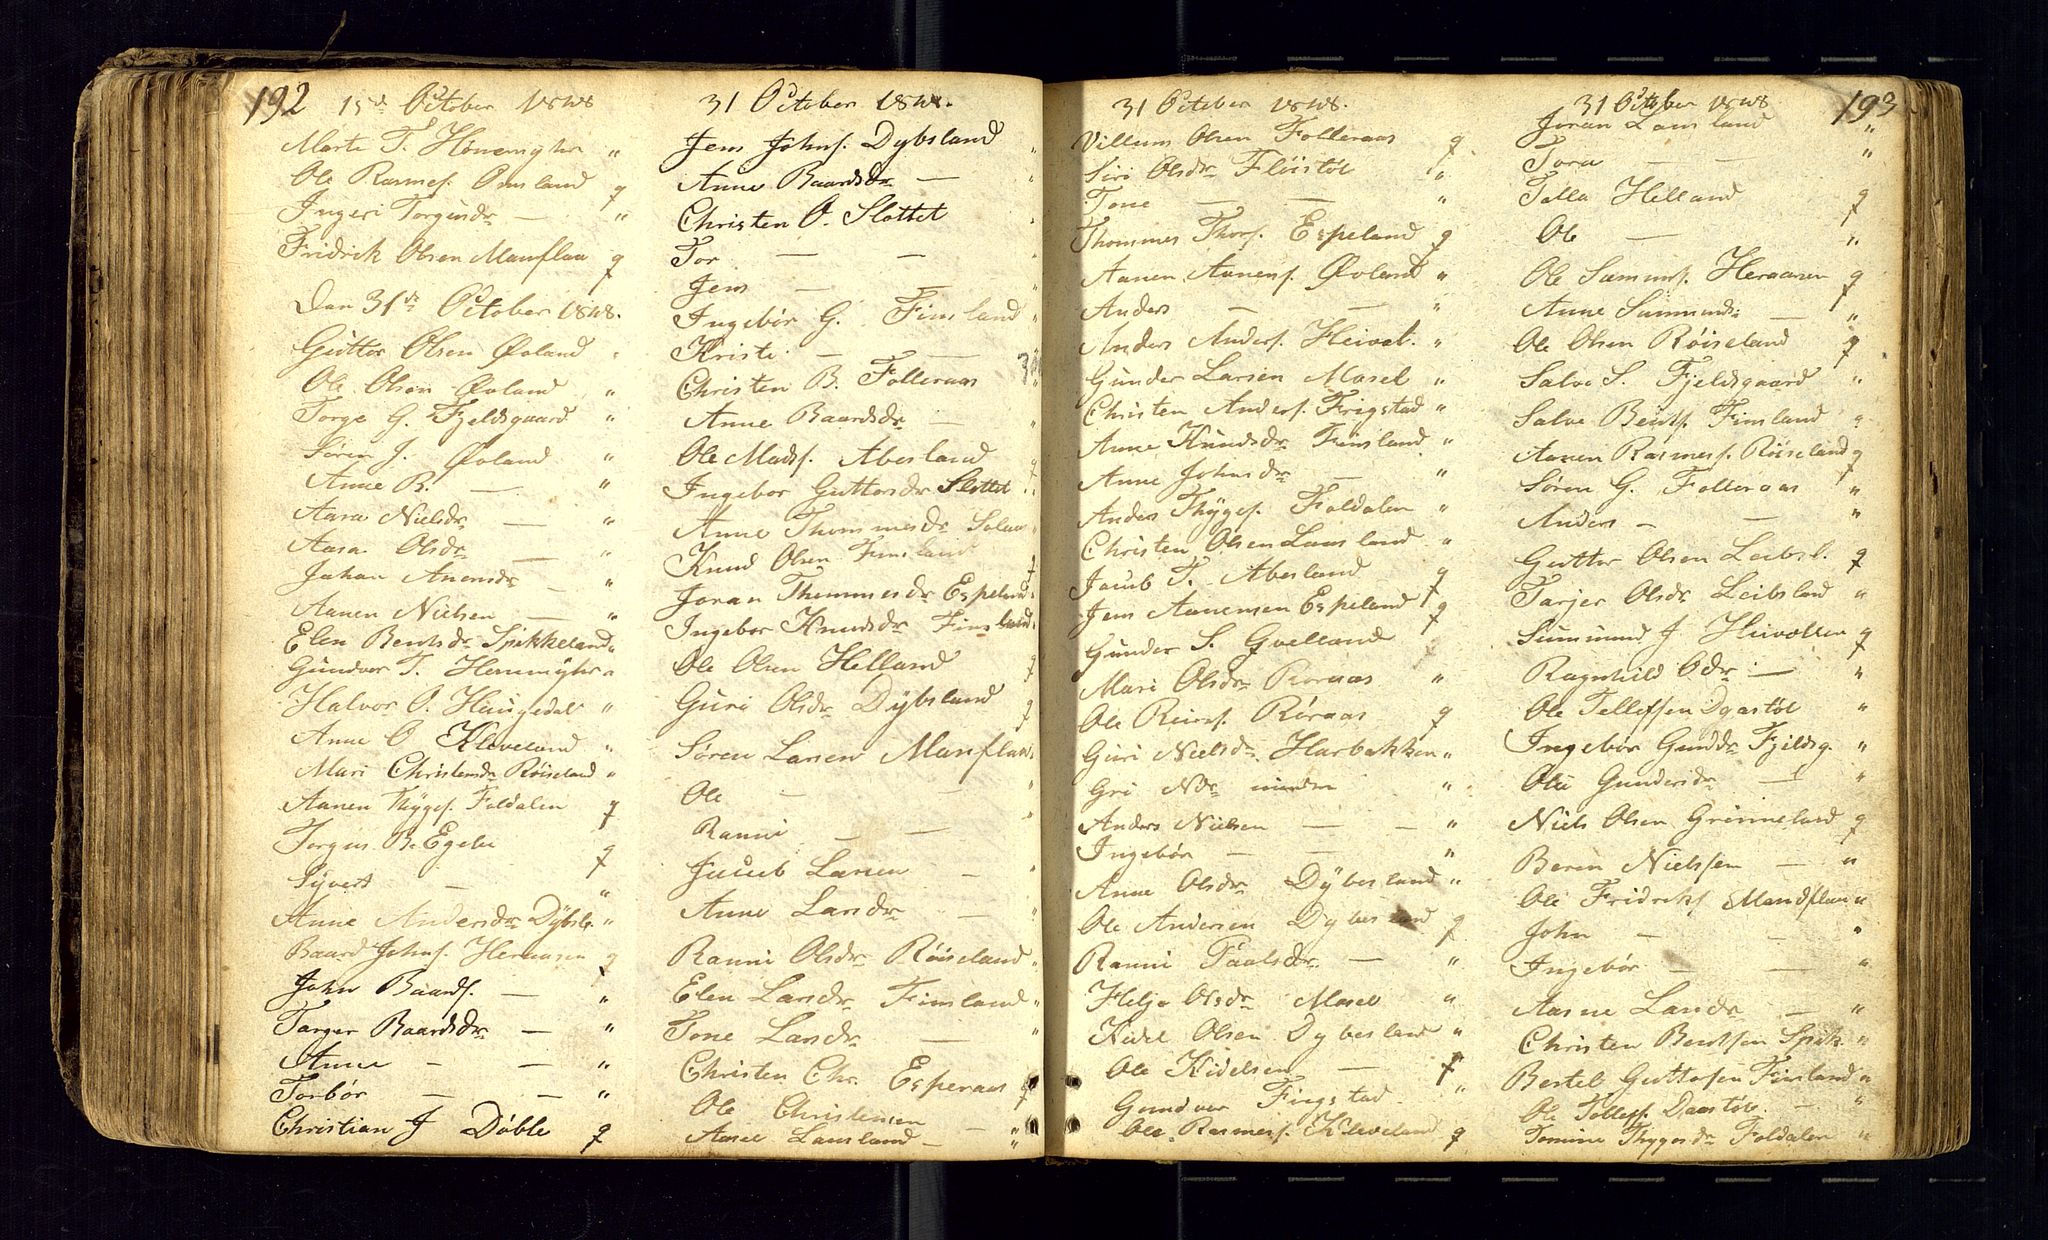 192 15de October 1848
Marte T. Hønemyhr "
Ole Rasmes. Omland g
Ingeri Torgusdr — "
Fridrik Olsen Manflaa g
Den 31de October 1848.
Guttor Olsen Øvland "
Ole Olsen Øvland "
Torge G. Fjeldsgaard "
Søren J. Øvland "
Anne B. — "
Aase Nielsdr — "
Aasa Olsdr — "
Johan Anensdr — "
Aanen Nielsen — "
Elen Bentsdr Spikkeland "
Gundvor T. Hønemyhr "
Halvor O. Haugedal "
Anne O Kleveland "
Mari Christensdr Røiseland "
Aanen Thyges. Foldalen g
Torgus B. Egeli g
Syvert — "
Anne Andersdr Dybsl. "
Baard Johns. Heraasen g
John Baards. — "
Targer Baardsdr — "
Anne — — "
Torbør — — "
Christian J Døble g
31 October 1848.
Jens Johns. Dybsland "
Anne Baardsdr — "
Christen O. Slottet "
Tor — — "
Jens — — "
Ingebør G. Finsland "
Kristi — — "
Christen B. Folleraas "
Anne Baardsdr — "
Ole Mads. Abesland g
Ingebor Guttorsdr Slottet "
Anne Thommesdr Solaas "
Knud Olsen Finsland g
Joran Thommesdr Espeland "
Ingebor Knudsdr Finsland "
Ole Olsen Helland g
Guri Olsdr Dybsland g
Søren Larsen Manflaa "
Ole — — "
Ranni — — "
Jacob Larsen — "
Anne Larsdr — "
Ranni Olsdr Røiseland "
Elen Larsdr Finsland "
Tone Larsdr — "
Christen Chr. Esperaas g
Ole Christensen — "
Aasel Laasland — "
31 October 1848.
Villum Olsen Folleraas g
Siri Olsdr Fløistøl "
Tone — — "
Thommes Thors. Espeland g
Aanen Aanens. Øvland "
Anders — — "
Anders Anders. Heivol. "
Gunder Larsen Mosel "
Christen Anders. Frigstad "
Anne Knudsdr Finsland "
Anne Johnsdr — "
Anders Thyges. Foldalen "
Christen Olsen Laasland "
Jacob T. Abesland g
Jens Aanensen Espeland g
Gunder S. Qvelland
Mari Olsdr Røraas "
Ole Reiers. Røraas g
Guri Nielsdr Harbakken "
Gri Ndr mindre "
Anders Nielsen — — "
Ingebør — — "
Anne Olsdr Dybesland "
Ole Andersen Dybesland g
Ranni Taalsdr — "
Helje Olsdr Mosel "
Kidel Olsen Dybesland "
Ole Kidelsen — g
Gundvor Frigstad "
Ole Rasmess. Kleveland g
31 October 1848 193
Joran Laasland "
Tora — — "
Talla Helland g
Ole — "
Ole Sammes. Heraasen g
Anne Summundsdr — "
Ole Olsen Røiseland g
Salve S. Fjeldsgaard "
Salve Bents. Finsland "
Aanen Rasmess. Røiseland g
Søren G. Folleraas "
Anders — — "
Guttor Olsen Leibsl. g
Tarjer Olsdr Leibsland "
Summund J Heivollen g
Ragnhild Odr — "
Ole Tellefsen Daastøl "
Ingebør Gundr Fjeldsg. "
Oli Gundersdr — "
Niels Olsen Grinneland g
Beren Nielssen — "
Ole Fridriks. Mandflaa "
John — — "
Ingebør — — "
Aasne Larsdr — "
Christen Bentssen Spik. "
Bertel Guttosen Finsland "
Ole Tellefs. Daastøl — "
Tomine Thygesdr Foldalen "